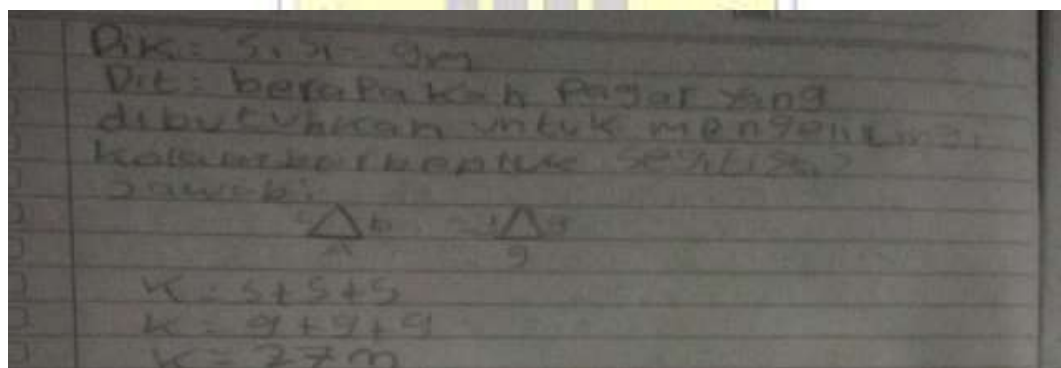 Dik: sisi = 9m
Dit: berapakah Pagar yang
dibutuhkan untuk mengelilingi
kolam berbentuk segitiga?
Jawab:
c △ b 9 △ 9
a 9
K = s+s+s
k = 9+9+9
K = 27 m